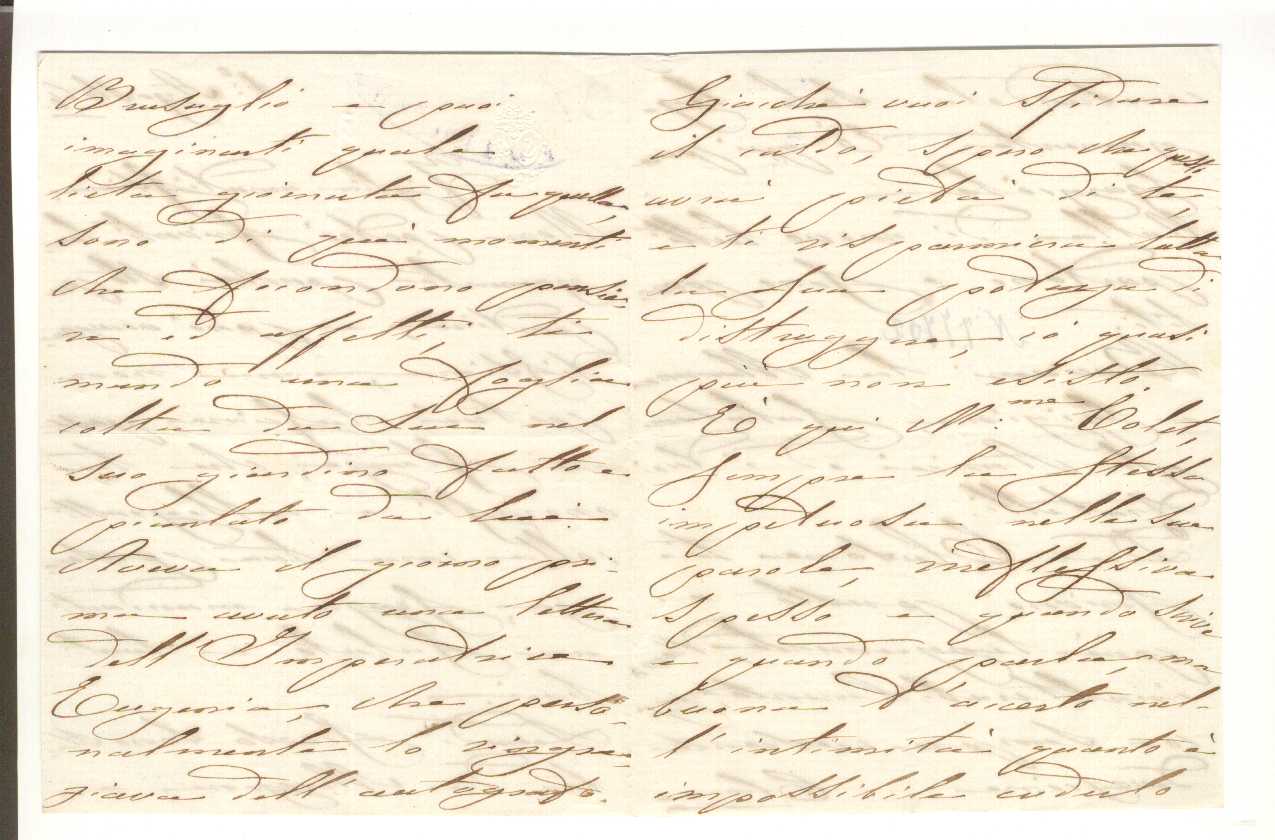 Brusuglio e puoi
imaginarti quale
lieta giornata fu quella,
sono di que' momenti
che fecondono pensie-
ri ed affetti, ti
mando una foglia
colta da Lui nel
suo giardino fatto e
piantato da lui.
Aveva il giorno pri-
ma avuto una lettera
dell'Imperatrice
Eugenia, che perso-
nalmente lo ringra-
ziava dell'autografo.
Giacchè vuoi sfidare
il caldo, spero che questi
avrà pietà di te,
e ti risparmierà tutta
la sua potenza di
distruggere, io quasi
più non esisto.
È qui M.me Colet,
sempre la stessa
impetuosa nella sua
parola, irreflessiva
spesso e quando scrive
e quando parla, ma
buona d'accerto nel-
l'intimità quanto è
impossibile crederlo